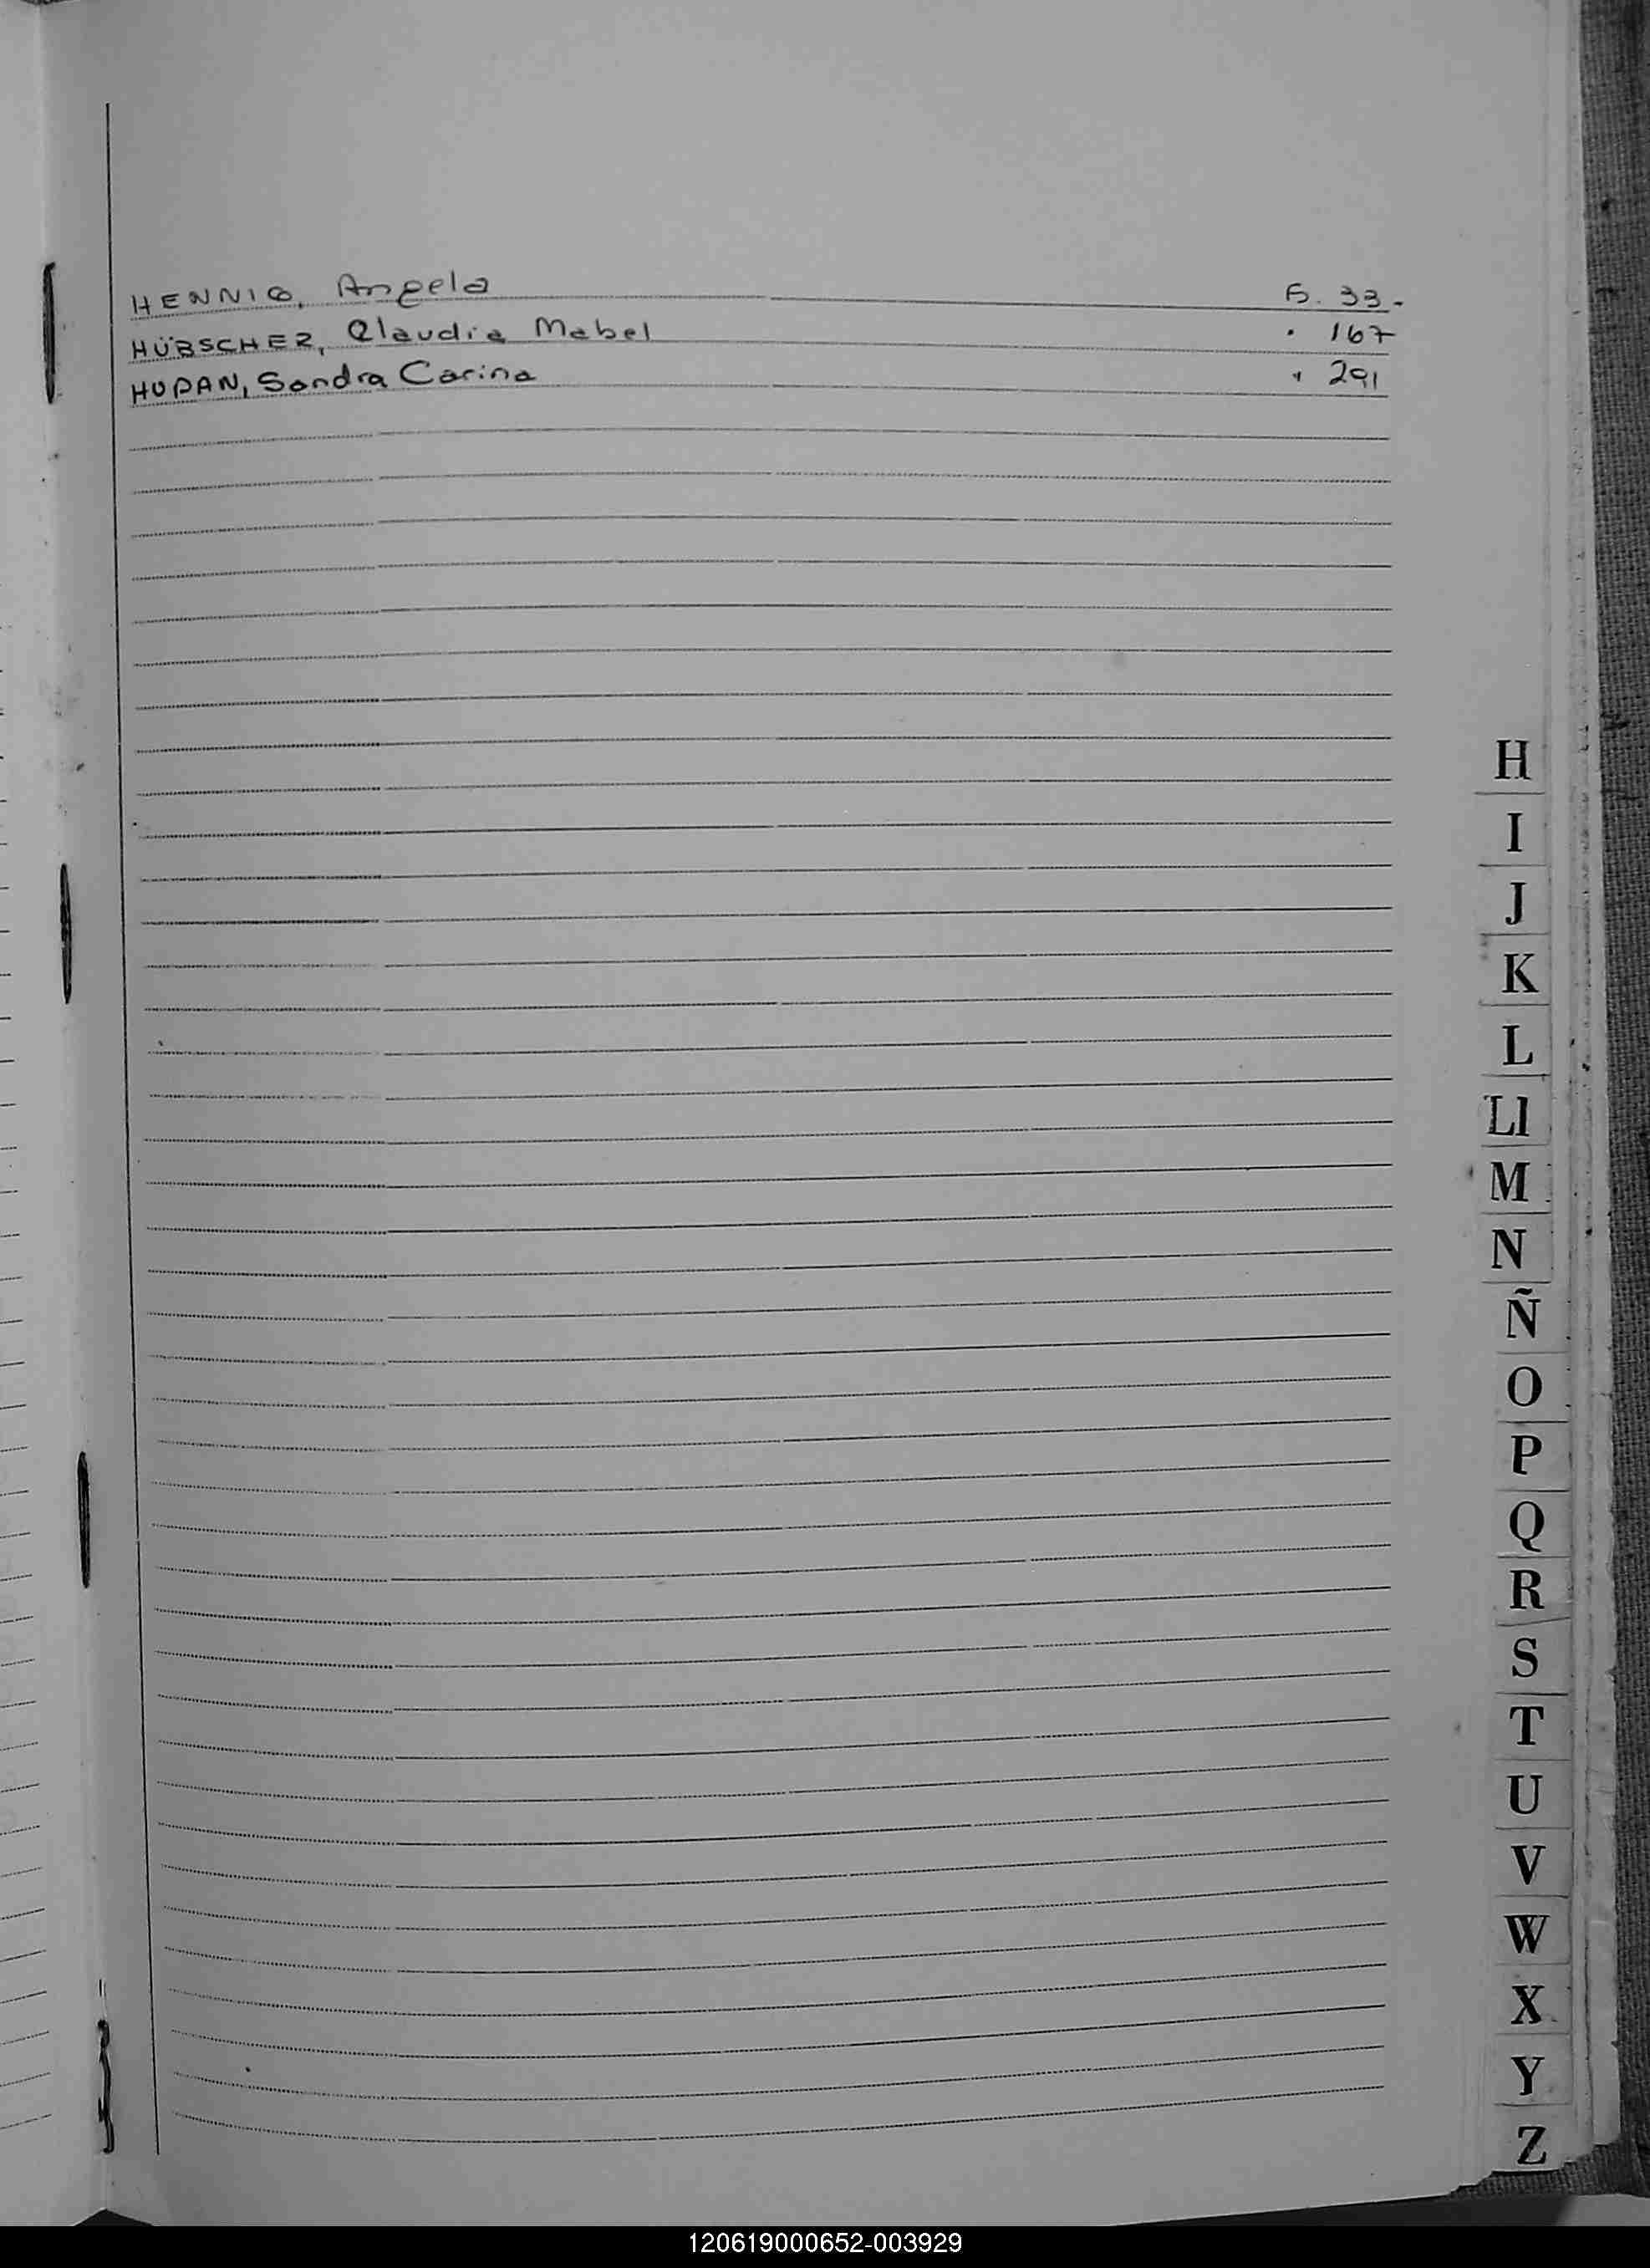 HENNIG, Angela F. 33.-
HÜBSCHER, Claudia Mabel " 167
HUPAN, Sandra Carina " 291
H
I
J
K
L
Ll
M
N
Ñ
O
P
Q
R
S
T
U
V
W
X
Y
Z
120619000652-003929